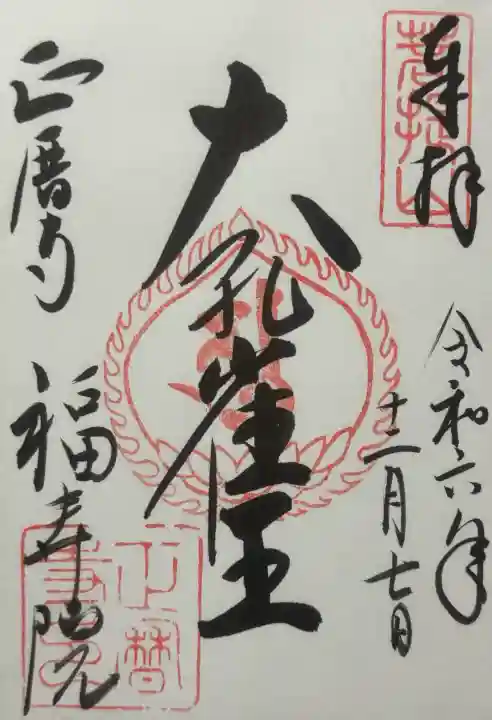 奉拝
令和六年
十二月七日
大孔雀王
正暦寺
福寿院